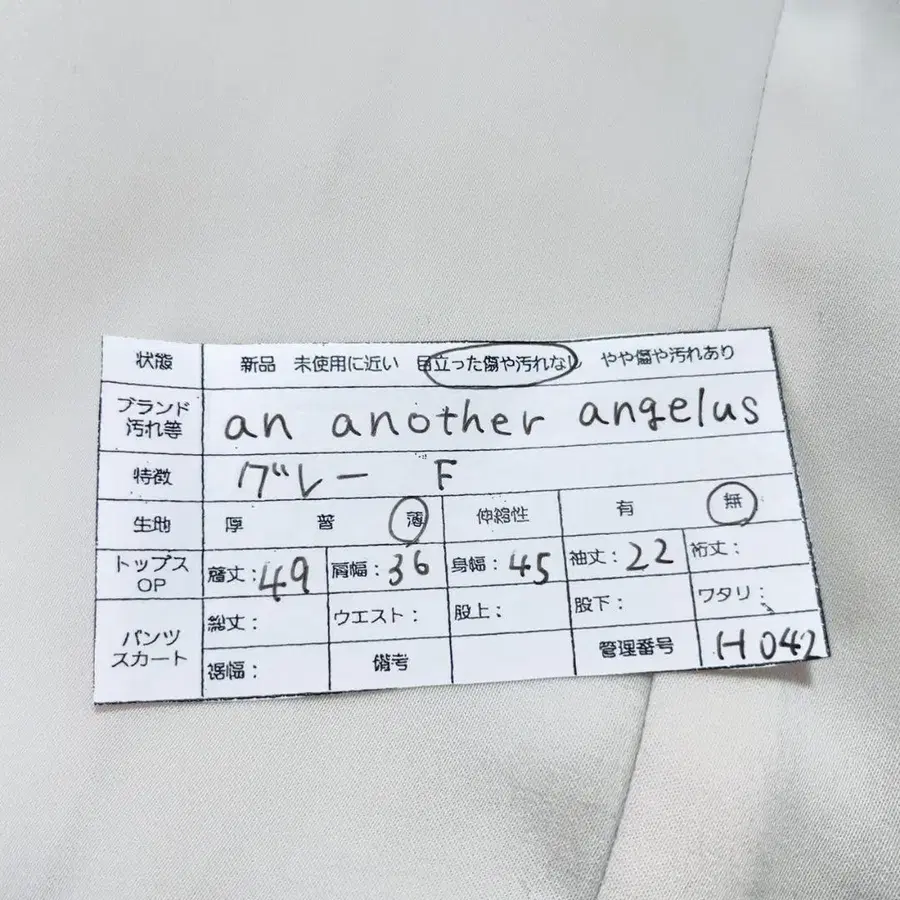 状態 新品 未使用に近い 目立った傷や汚れなし やや傷や汚れあり
ブランド
汚れ等 an another angelus
特徴 グレー F
生地 厚 普 薄 伸縮性 有 無
トップス
OP 着丈:49 肩幅:36 身幅:45 袖丈:22 裄丈:
パンツ
スカート 総丈: ウエスト: 股上: 股下: ワタリ:
裾幅: 備考 管理番号 H042